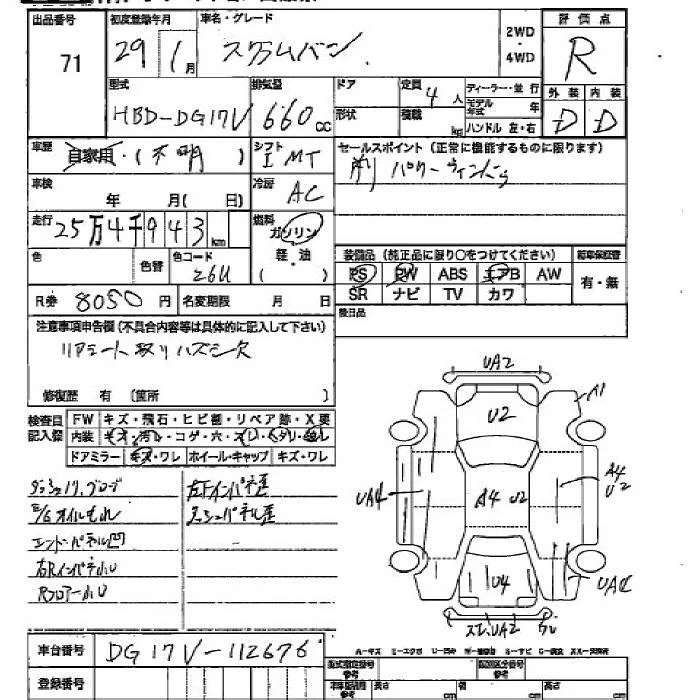 出品番号 初度登録年月 車名・グレード 2WD・4WD 評価点
71 29年1月 スクラムバン R
型式 排気量 ドア 定員 4人 ディーラー・並行 外装 内装
HBD-DG17V 660cc 形状 積載 kg モデル年式 年 D D
ハンドル 左・右
車歴 自家用・(不明) シフト I MT セールスポイント(正常に機能するものに限ります)
パワーウィンドゥ
車検 年 月(日) 冷房 AC
走行 25万4千943km 燃料 ガソリン
軽・油
( )
装備品(施正品に限り○をつけてください) 新車保証書
色 色替 色コード 26U PS PW ABS エアB AW 有・無
SR ナビ TV カワ
R券 8050円 名変期限 月 日 後日品
注意事項申告欄(不具合内容等は具体的に記入して下さい)
リアシート取りハズシ欠
修復歴 有(箇所 )
検査員記入欄 FW キズ・飛石・ヒビ割・リペア跡・X要
内装 キオ・汚レ・コゲ・穴・スレ
ドアミラー キズ・ワレ ホイール・キャップ キズ・ワレ
UA2
U2 A1
UA4 A4 U2 A4 U2
U4
UA2
左Fインパネ歪
E/Gオイルもれ ラッシュパネル歪
エンドパネル凹
右Rインパネ小U
Rフロアー小U
車台番号 DG17V-112676
登録番号
型式指定番号 参考 類別区分番号 参考
長さ cm cm cm